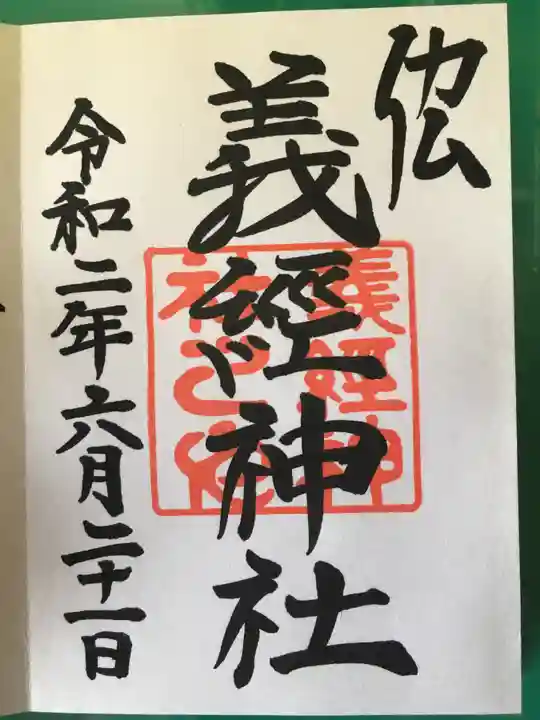 義經神社
令和二年六月二十一日
義經神
社之